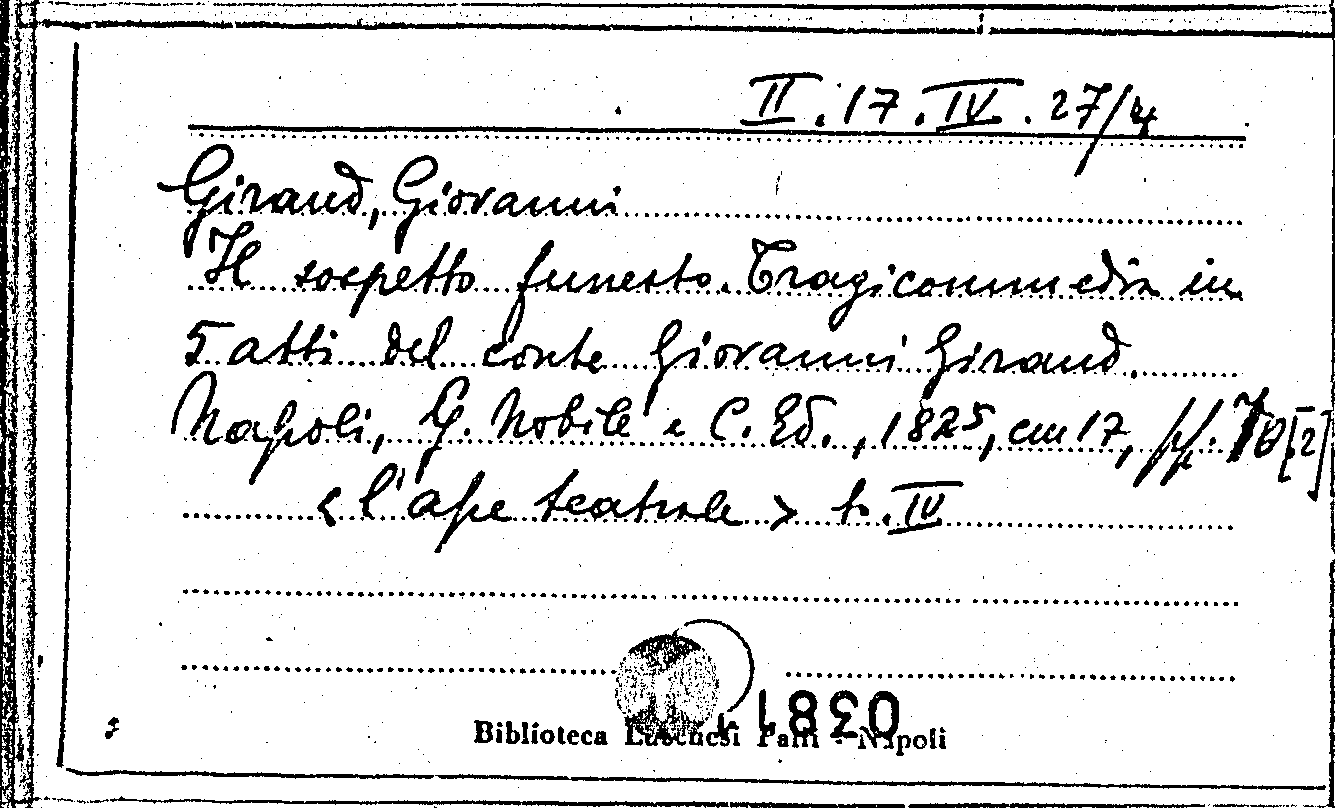 II.17.IV.27/4
Giraud, Giovanni
Il sospetto funesto. Tragicommedia in
5 atti del conte Giovanni Giraud.
Napoli, G. Nobile e C. Ed., 1825, cm 17, pp. [2]
<l'ape teatrale> t. IV
Biblioteca Lucchesi Palli - Napoli